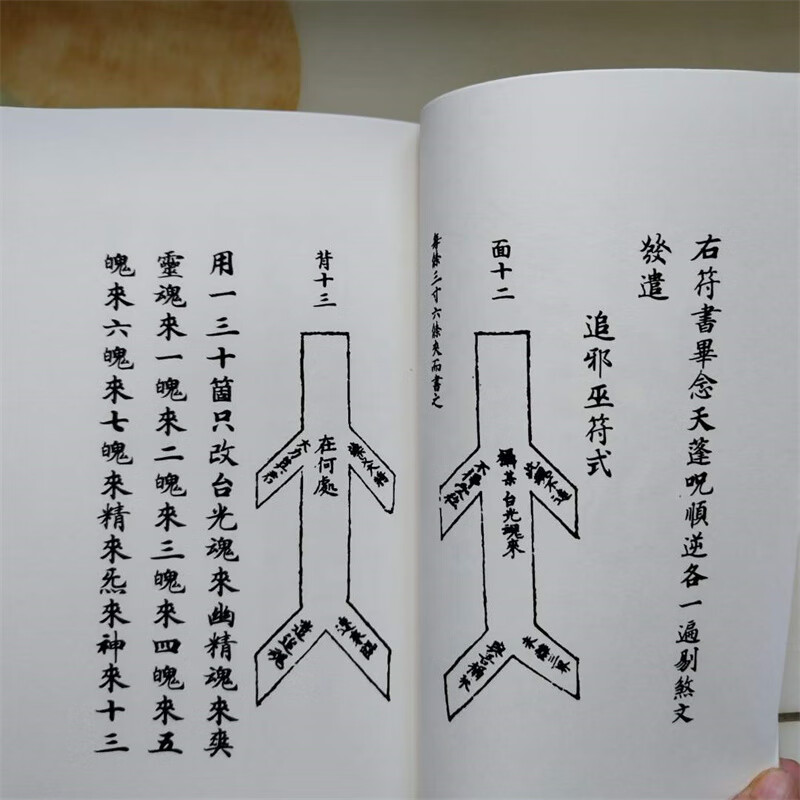 右符書畢念天蓬呪順逆各一遍剔煞文
發遣
追邪巫符式
面十二
攝某台光魂來
每條三寸六條夾而書之
背十三
在何處
用一三十箇只改台光魂來幽精魂來爽
靈魂來一魄來二魄來三魄來四魄來五
魄來六魄來七魄來精來炁來神來十三